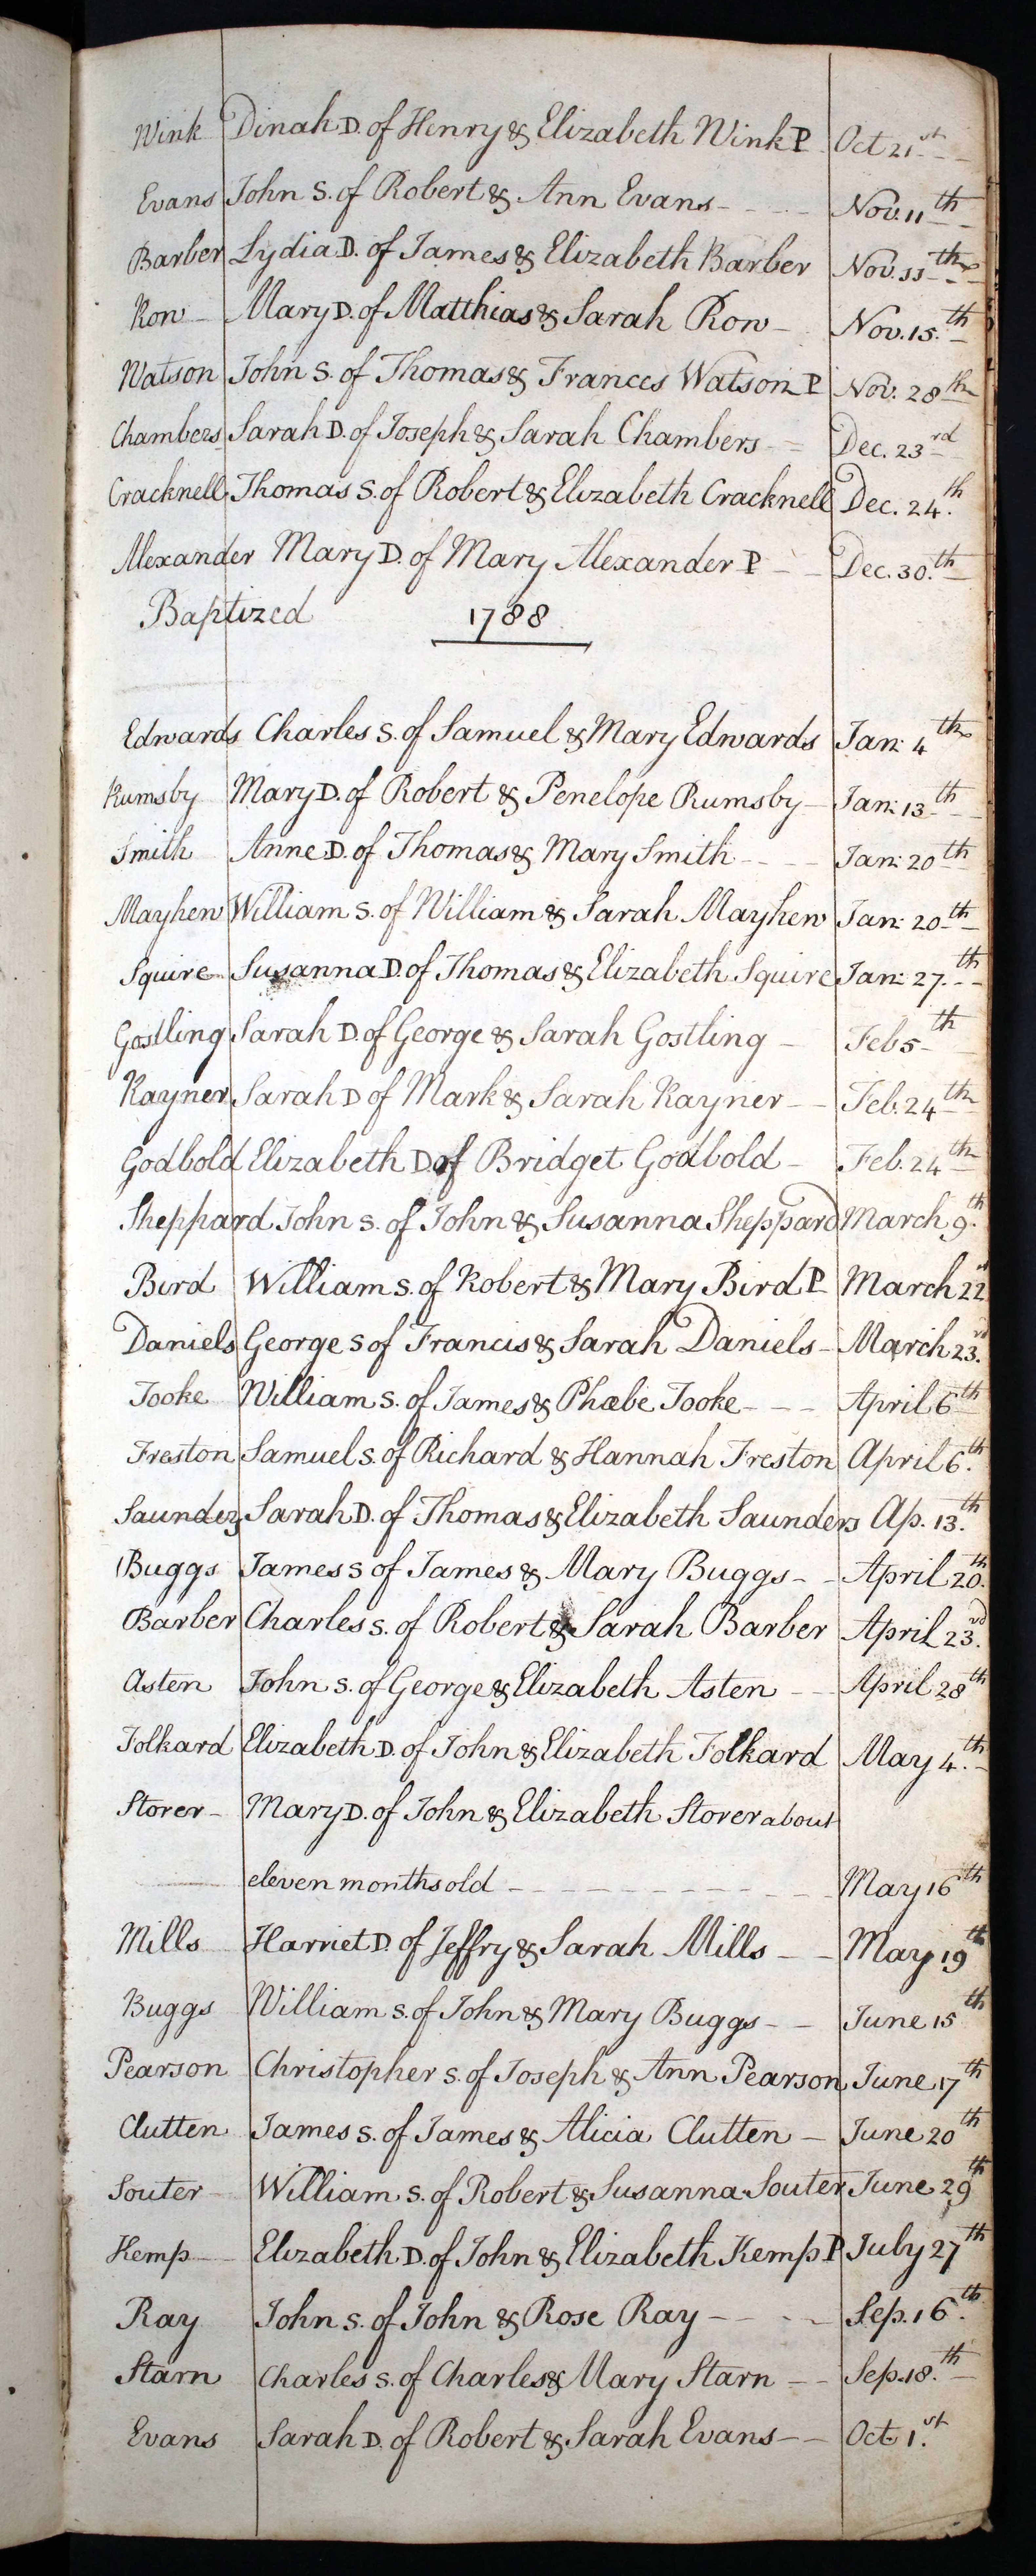 Wink Dinah D. of Henry & Elizabeth Wink P Oct 21st
Evans John S. of Robert & Ann Evans Nov. 11th
Barber Lydia D. of James & Elizabeth Barber Nov. 11th
Row Mary D. of Matthias & Sarah Row Nov. 15th
Watson John S. of Thomas & Frances Watson P Nov. 28th
Chambers Sarah D. of Joseph & Sarah Chambers Dec. 23rd
Cracknell Thomas S. of Robert & Elizabeth Cracknell Dec. 24th
Alexander Mary D. of Mary Alexander P Dec. 30th
Baptized 1788
Edwards Charles S. of Samuel & Mary Edwards Jan: 4th
Rumsby Mary D. of Robert & Penelope Rumsby Jan: 13th
Smith Anne D. of Thomas & Mary Smith Jan: 20th
Mayhew William S. of William & Sarah Mayhew Jan: 20th
Squire Susanna D. of Thomas & Elizabeth Squire Jan: 27th
Gostling Sarah D. of George & Sarah Gostling Feb 5th
Rayner Sarah D of Mark & Sarah Rayner Feb. 24th
Godbold Elizabeth D. of Bridget Godbold Feb. 24th
Sheppard John S. of John & Susanna Sheppard March 9th
Bird William S. of Robert & Mary Bird P March 22
Daniels George S of Francis & Sarah Daniels March 23rd
Tooke William S. of James & Phœbe Tooke April 6th
Freston Samuel S. of Richard & Hannah Freston April 6th
Saunders Sarah D. of Thomas & Elizabeth Saunders Ap. 13th
Buggs James S of James & Mary Buggs April 20th
Barber Charles S. of Robert & Sarah Barber April 23rd
Asten John S. of George & Elizabeth Asten April 28th
Folkard Elizabeth D. of John & Elizabeth Folkard May 4th
Storer Mary D. of John & Elizabeth Storer about
eleven months old May 16th
Mills Harriet D. of Jeffry & Sarah Mills May 19th
Buggs William S. of John & Mary Buggs June 15th
Pearson Christopher S. of Joseph & Ann Pearson June 17th
Clutten James S. of James & Alicia Clutten June 20th
Souter William S. of Robert & Susanna Souter June 29th
Kemp Elizabeth D. of John & Elizabeth Kemp P July 27th
Ray John S. of John & Rose Ray Sep. 16th
Starn Charles S. of Charles & Mary Starn Sep. 18th
Evans Sarah D. of Robert & Sarah Evans Oct. 1st